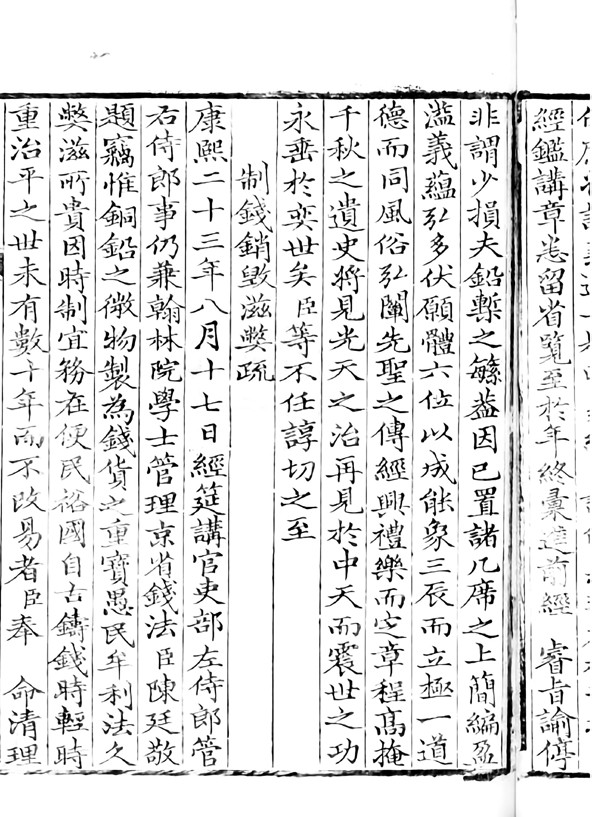 經鑑講章悉留省覽至於年終彙進前經　睿旨諭停
非謂少損夫鉛槧之緐葢因已置諸几席之上簡編盈
滥義蘊弘多伏願體六位以成能象三辰而立極一道
德而同風俗弘闡先聖之傳經興禮樂而定章程髙掩
千秋之遺史將見光天之治再見於中天而震世之功
永垂於奕世矣臣等不任諄切之至
制錢銷毁滋獘疏
康熙二十三年八月十七日經筵講官吏部左侍郎管
右侍郎事仍兼翰林院學士管理京省錢法臣陳廷敬
題竊惟銅鉛之微物製為錢貨之重寶愚民牟利法久
獘滋所貴因時制宜務在便民裕國自古鑄錢時輕時
重治平之世未有數十年而不改易者臣奉　命清理